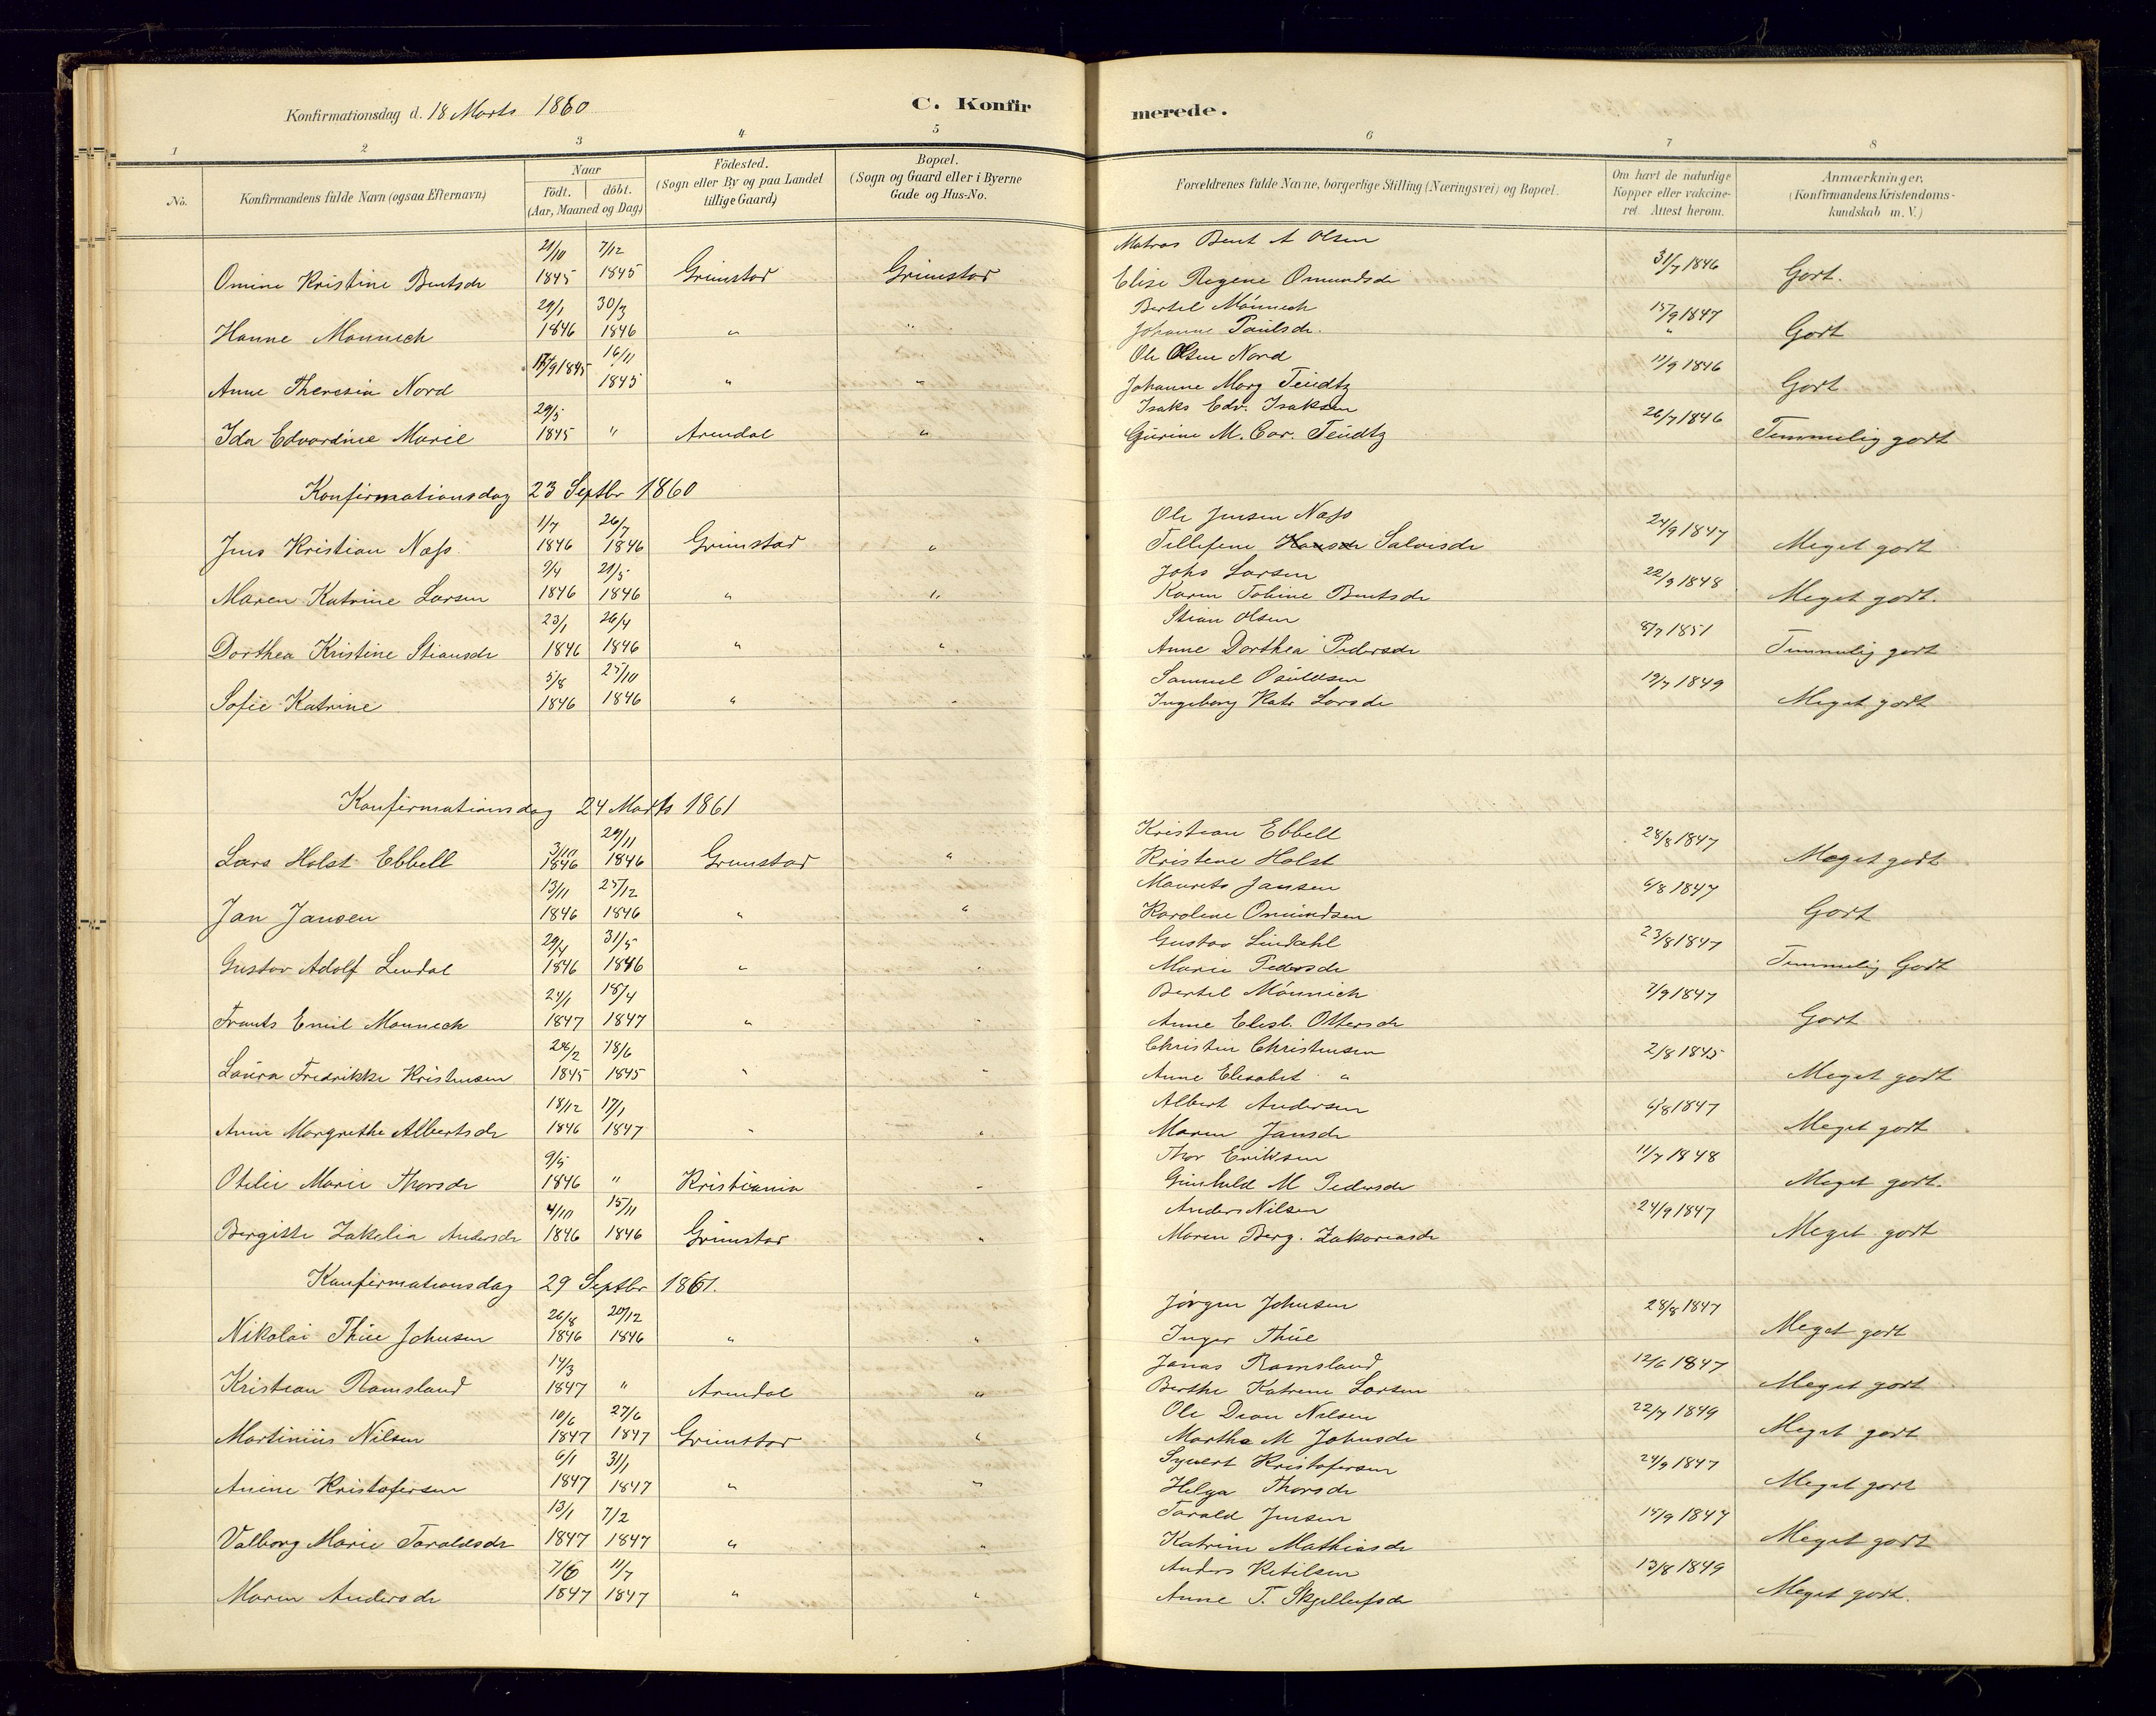 Konfirmationsdag d. 18 Marts 1860
C. Konfirmerede.
1 2 3 4 5 6 7 8
No. Konfirmandens fulde Navn (ogsaa Efternavn) Naar födt. döbt. (Aar, Maaned og Dag) Födested. (Sogn eller By og paa Landet tillige Gaard) Bopæl. (Sogn og Gaard eller i Byerne Gade og Hus-No. Forældrenes fulde Navne, borgerlige Stilling (Næringsvei) og Bopæl. Om havt de naturlige Kopper eller vakcineret. Attest herom. Anmærkninger, (Konfirmandens Kristendomskundskab m. V.)
21/10 7/12 Matros Bent A Olsen
Omine Kristine Bentsdr 1845 1845 Grimstad Grimstad Elise Regene Omundsdr 31/7 1846 Godt.
29/1 30/3 Bertel Mönnich
Hanne Monnich 1846 1846 " " Johanne Paulsdr. 15/9 1847 Godt
17/9 1845 16/11 Ole Olsen Nord
Anne Theresia Nord 1845 " " Johanne Marg Teudtz 11/9 1846 Godt
29/5 Isaks Edv. Isaksen
Ida Edvardine Marie 1845 " Arendal " Gurine M. Car. Teudtz 26/7 1846 Temmelig godt
Konfirmationsdag 23 Septbr 1860
1/7 26/7 Ole Jensen Næss
Jens Kristian Næss 1846 1846 Grimstad " Tellefine Hansdr Salvisdr 24/9 1847 Meget godt
9/4 21/5 Johs Larsen
Maren Katrine Larsen 1846 1846 " " Karen Tobine Bentsdr 22/9 1848 Meget godt.
23/1 26/4 Stian Olsen
Dorthea Kristine Stiansdr 1846 1846 " " Anne Dorthea Pedersdr 8/7 1851 Temmelig godt
5/8 25/10 Samuel Osuldsen
Sofie Katrine 1846 1846 " " Ingeborg Katr Larsdr 19/7 1849 Meget godt
Konfirmationsdag 24 Marts 1861
3/10 29/11 Kristian Ebbell
Lars Holst Ebbell 1846 1846 Grimstad " Kristene Holst 28/8 1847 Meget godt
13/11 25/12 Maurits Jansen
Jan Jansen 1846 1846 " " Karolene Omundsen 6/8 1847 Godt
29/4 31/5 Gustav Lindahl
Gustav Adolf Lindal 1846 1846 " " Marie Pedersdr 23/8 1847 Temmelig Godt
24/1 18/4 Bertel Mönnich
Frants Emil Monnich 1847 1847 " " Anne Elisb. Ottersdr 7/9 1847 Godt
28/2 18/6 Christen Christensen
Laura Fredrikke Kristensen 1845 1845 " " Anne Elesabet " 2/8 1845 Meget godt
18/12 17/1 Albert Andersen
Anne Margrethe Albertsdr 1846 1847 " " Maren Jansdr 6/8 1847 Meget godt
9/5 Thor Eriksen
Otelie Marie Thorsdr 1846 " Kristiania " Gunhild M Pedersdr 11/7 1848 Meget godt.
4/10 15/11 Anders Nilsen
Bergitte Zakelia Andersdr 1846 1846 Grimstad " Maren Berg. Zakariasdr 24/9 1847 Meget godt
Konfirmationsdag 29 Septbr 1861.
26/8 20/12 Jörgen Johnsen
Nikolai Thue Johnsen 1846 1846 " " Inger Thue 28/8 1847 Meget godt
14/3 Jonas Ramsland
Kristian Ramsland 1847 " Arendal " Berthe Katrene Larsen 12/6 1847 Meget godt
10/6 27/6 Ole Nilsen
Martinius Nilsen 1847 1847 Grimstad " Marthe M Johnsdr 22/7 1849 Meget godt
6/1 31/1 Syvert Kristofersen
Anine Kristofersen 1847 1847 " " Helga Thorsdr 24/9 1847 Meget godt
13/1 7/2 Tarald Jensen
Valborg Marie Taraldsdr 1847 1847 " " Katrine Mathiasdr 14/9 1847 Meget godt
7/6 11/7 Anders Ketilsen
Maren Andersdr 1847 1847 " " Anne T. 13/8 1849 Meget godt.